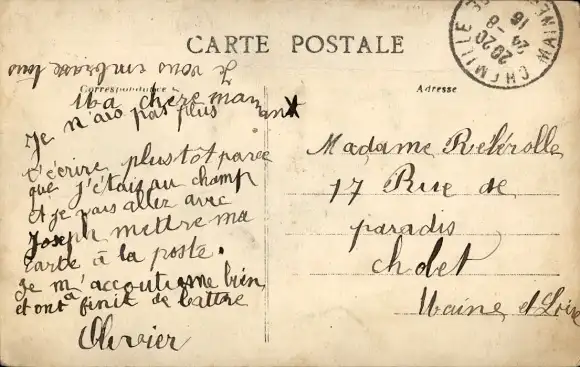 CARTE POSTALE
Je vous embrasse tous
Correspondance
Adresse
Ma chère maman
Je n'ais pas plus
t'écrire plustôt parce
que j'étais au champ
et je vais aller avec
Joseph mettre ma
carte à la poste.
Je m'accoutisme bien
et ont a finit de battre
Olivier
Madame Relérolle
17 Rue de
paradis
cholet
Maine et Loire
CHEMILLE
MAINE
20 20
24-8
16